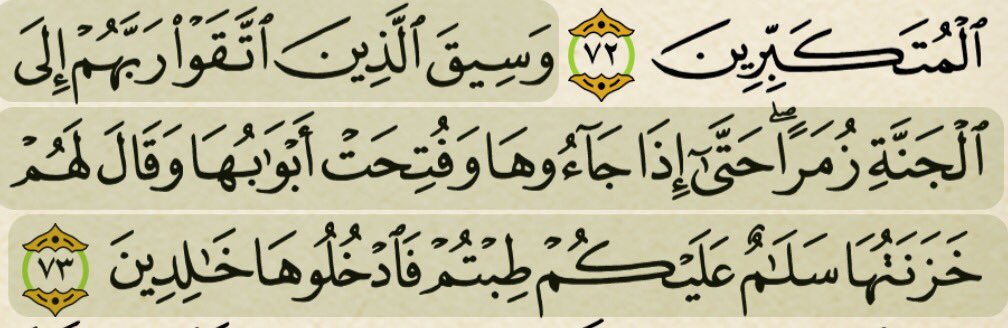 ٱلْمُتَكَبِّرِينَ ٧٢ وَسِيقَ ٱلَّذِينَ ٱتَّقَوْا۟ رَبَّهُمْ إِلَى
ٱلْجَنَّةِ زُمَرًا ۖ حَتَّىٰٓ إِذَا جَآءُوهَا وَفُتِحَتْ أَبْوَٰبُهَا وَقَالَ لَهُمْ
خَزَنَتُهَا سَلَـٰمٌ عَلَيْكُمْ طِبْتُمْ فَٱدْخُلُوهَا خَـٰلِدِينَ ٧٣